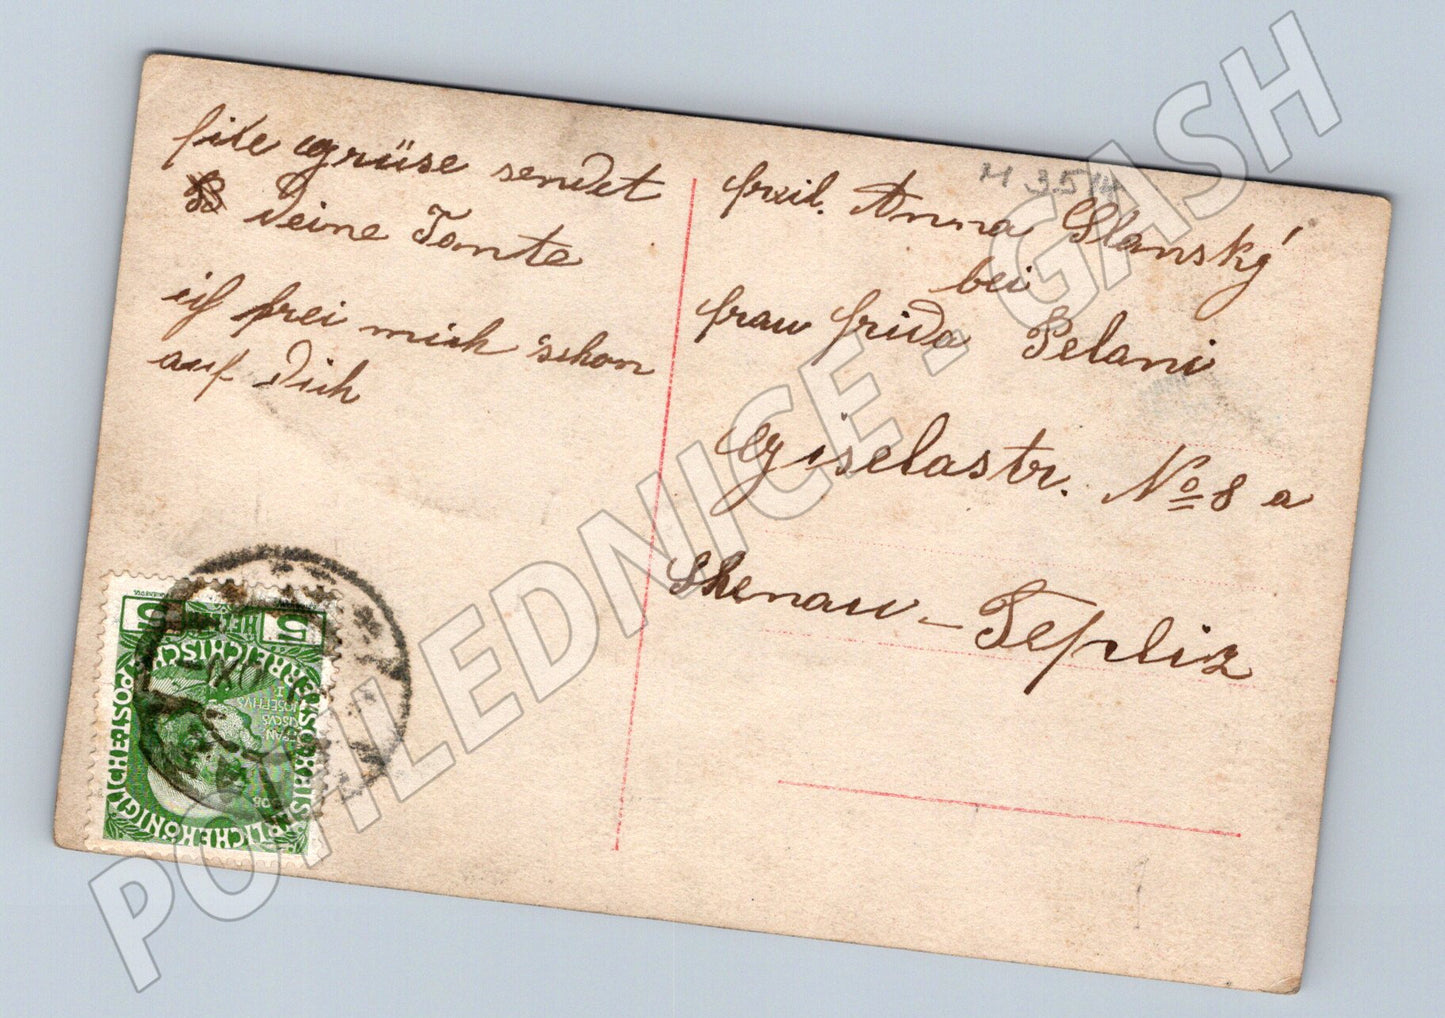 file grüse sendet
Deine Tante
ich frei mich schon
auf Dich
M 35/4
freil. Anna Slanský
bei
frau frida Pelani
Giselastr. No 8 a
Shenau - Tepliz
5
5
HEL
KAISERLICHE KÖNIGLICHE POST
FRANCISCUS
JOSEPHUS
I
POHLEDNICE - GASH